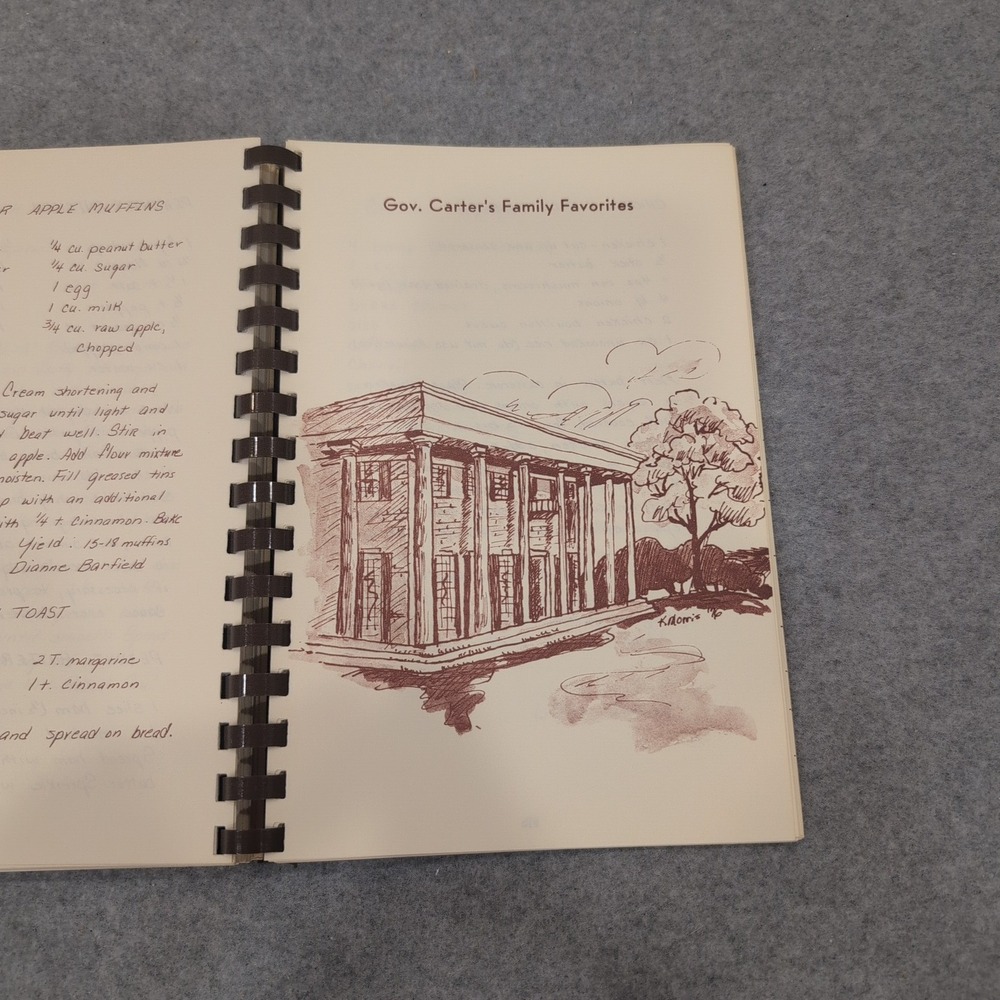 R APPLE MUFFINS
1/4 cu. peanut butter
r 1/4 cu. sugar
1 egg
1 cu. milk
3/4 cu. raw apple,
chopped
Cream shortening and
sugar until light and
d beat well. Stir in
apple. Add flour mixture
moisten. Fill greased tins
p with an additional
ith 1/4 t. cinnamon. Bake
Yield: 15-18 muffins
Dianne Barfield
TOAST
2 T. margarine
1 t. cinnamon
and spread on bread.
Gov. Carter's Family Favorites
K. Morris '76